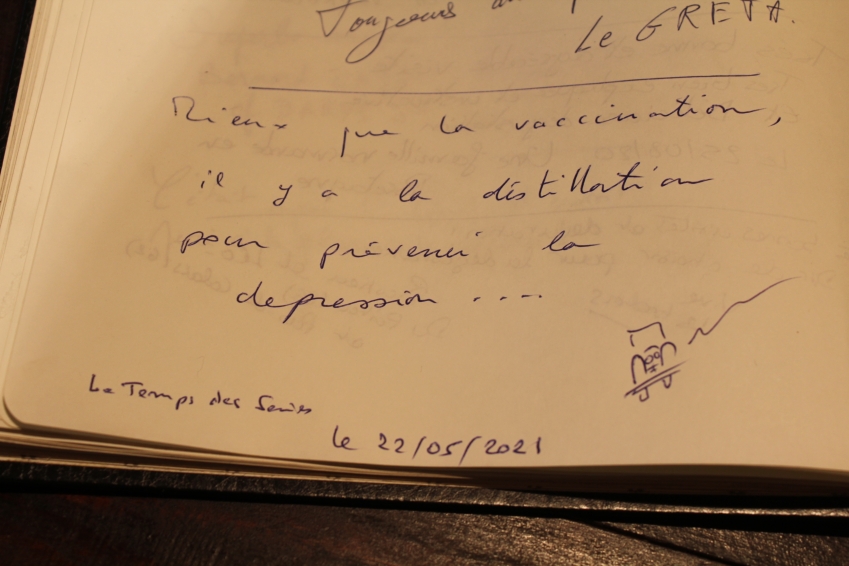 Toujours au
Le GRETA.
Mieux que la vaccination,
il y a la distillation
pour prévenir la
depression ....
Le Temps des
le 22/05/2021